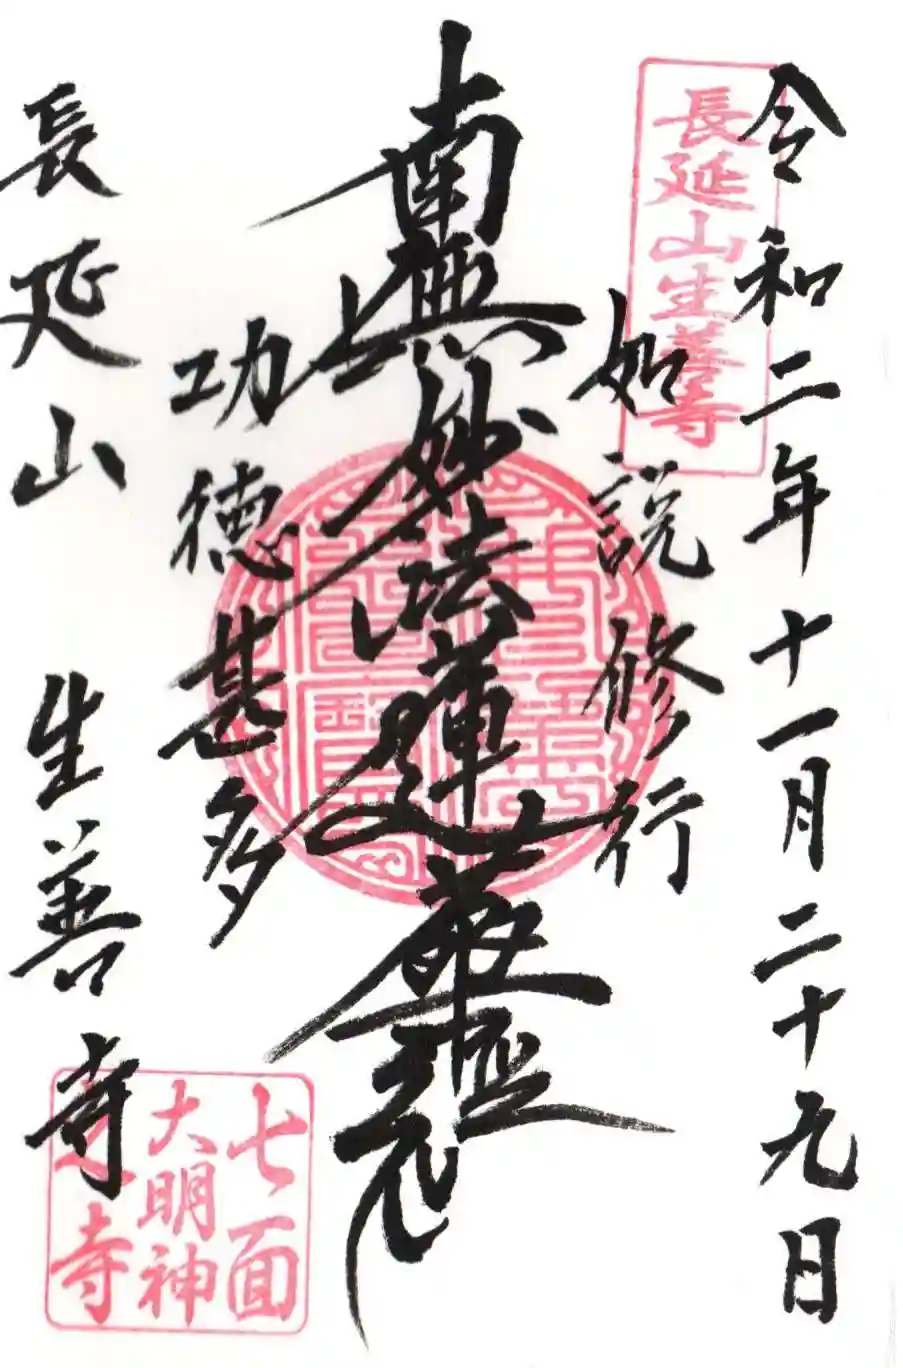 令和二年十一月二十九日
長延山生善寺
如説修行
南無妙法蓮華経
功徳甚多
長延山 生善寺
七面
大明神
寺